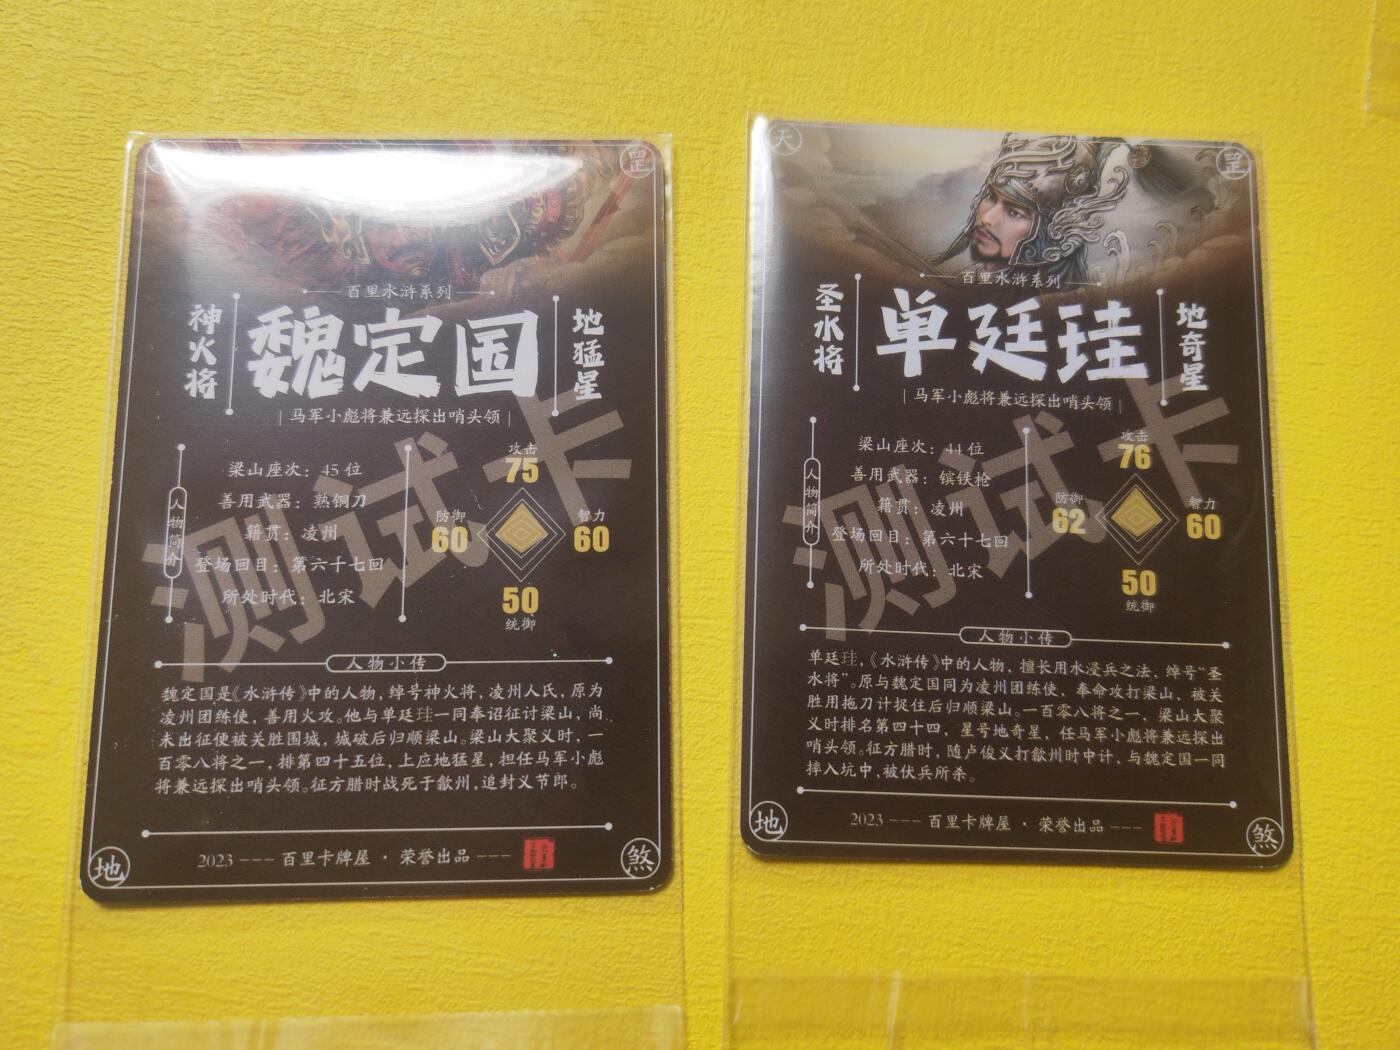 罡
百里水浒系列
神火将
魏定国
地猛星
马军小彪将兼远探出哨头领
人物简介
梁山座次：45 位
善用武器：熟铜刀
籍贯：凌州
登场回目：第六十七回
所处时代：北宋
攻击
75
防御
60
智力
60
50
统御
测试卡
人物小传
魏定国是《水浒传》中的人物，绰号神火将，凌州人氏，原为
凌州团练使，善用火攻。他与单廷珪一同奉诏征讨梁山，尚
未出征便被关胜围城，城破后归顺梁山。梁山大聚义时，一
百零八将之一，排第四十五位，上应地猛星，担任马军小彪
将兼远探出哨头领。征方腊时战死于歙州，追封义节郎。
地
2023 --- 百里卡牌屋 · 荣誉出品 ---
煞
天
罡
百里水浒系列
圣水将
单廷珪
地奇星
马军小彪将兼远探出哨头领
人物简介
梁山座次：44 位
善用武器：镔铁枪
籍贯：凌州
登场回目：第六十七回
所处时代：北宋
攻击
76
防御
62
智力
60
50
统御
测试卡
人物小传
单廷珪，《水浒传》中的人物、擅长用水浸兵之法、绰号“圣
水将”。原与魏定国同为凌州团练使、奉命攻打梁山、被关
胜用拖刀计捉住后归顺梁山。一百零八将之一、梁山大聚
义时排名第四十四，星号地奇星、任马军小彪将兼远探出
哨头领。征方腊时，随卢俊义打歙州时中计，与魏定国一同
摔入坑中，被伏兵所杀。
地
2023 --- 百里卡牌屋 · 荣誉出品 ---
煞